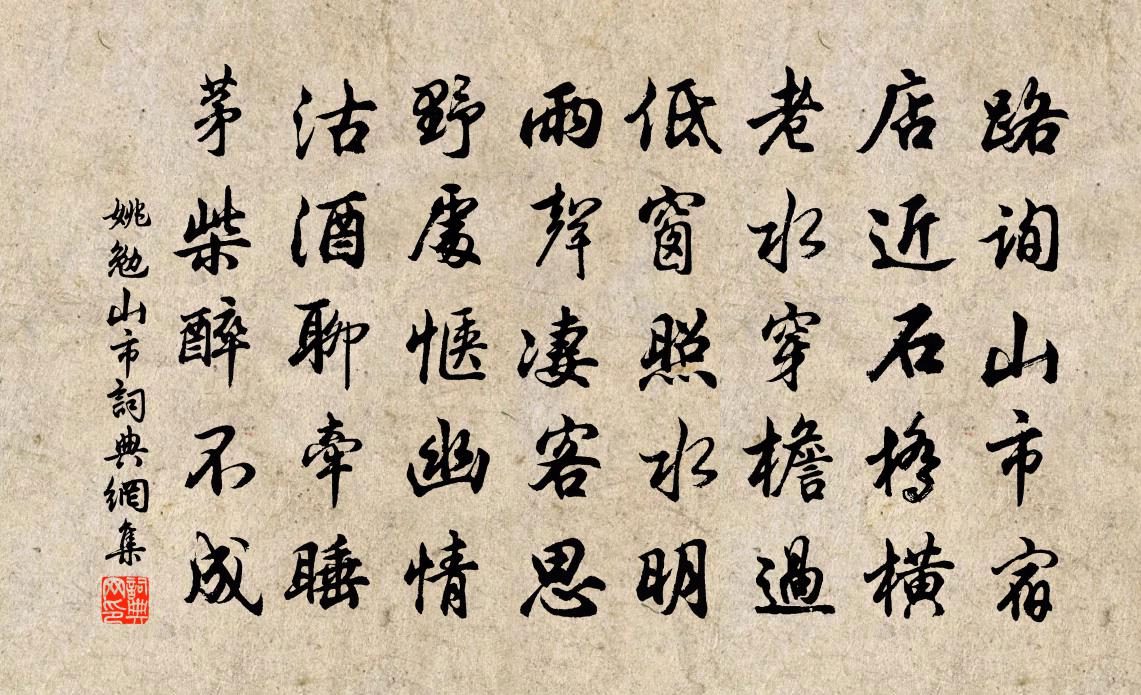 路詢山市宿
店近石橋橫
老水穿檐過
低窗照水明
雨聲凄客思
野處愜幽情
沽酒聊牽睡
茅柴醉不成
姚勉山市詞典網集
詞典网印